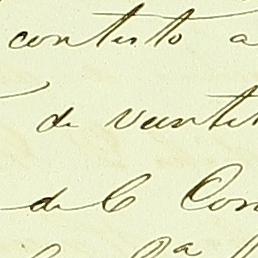 contesto a
de veinti
de C Con